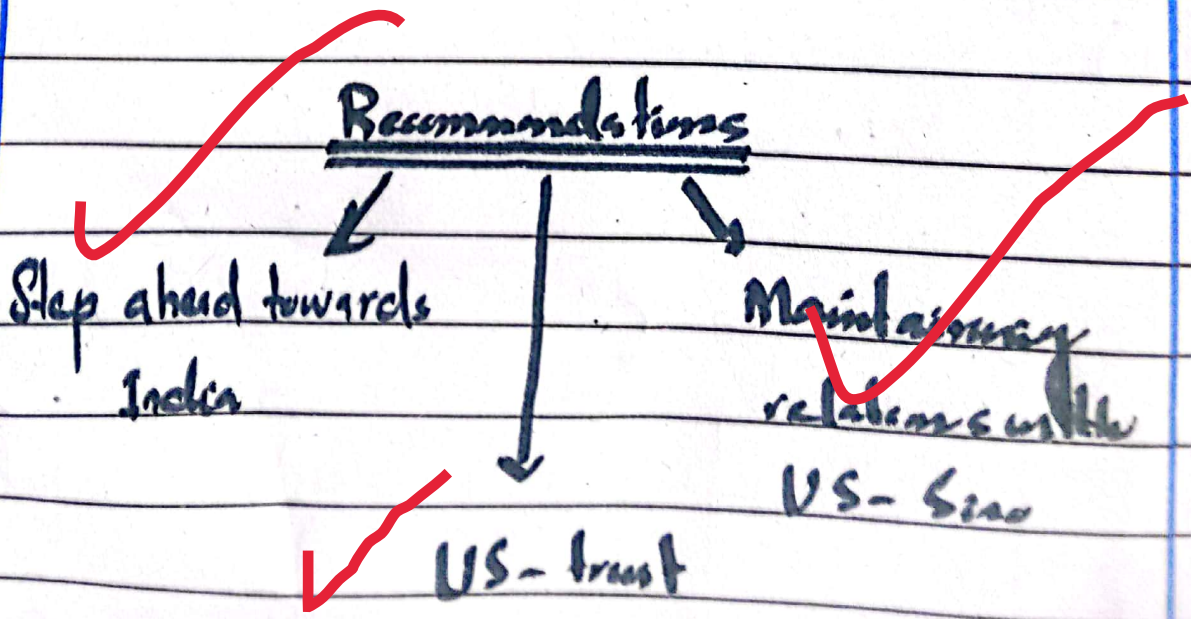 Recommendations
Step ahead towards
India
Maintaining
relations with
US - Sino
US - trust